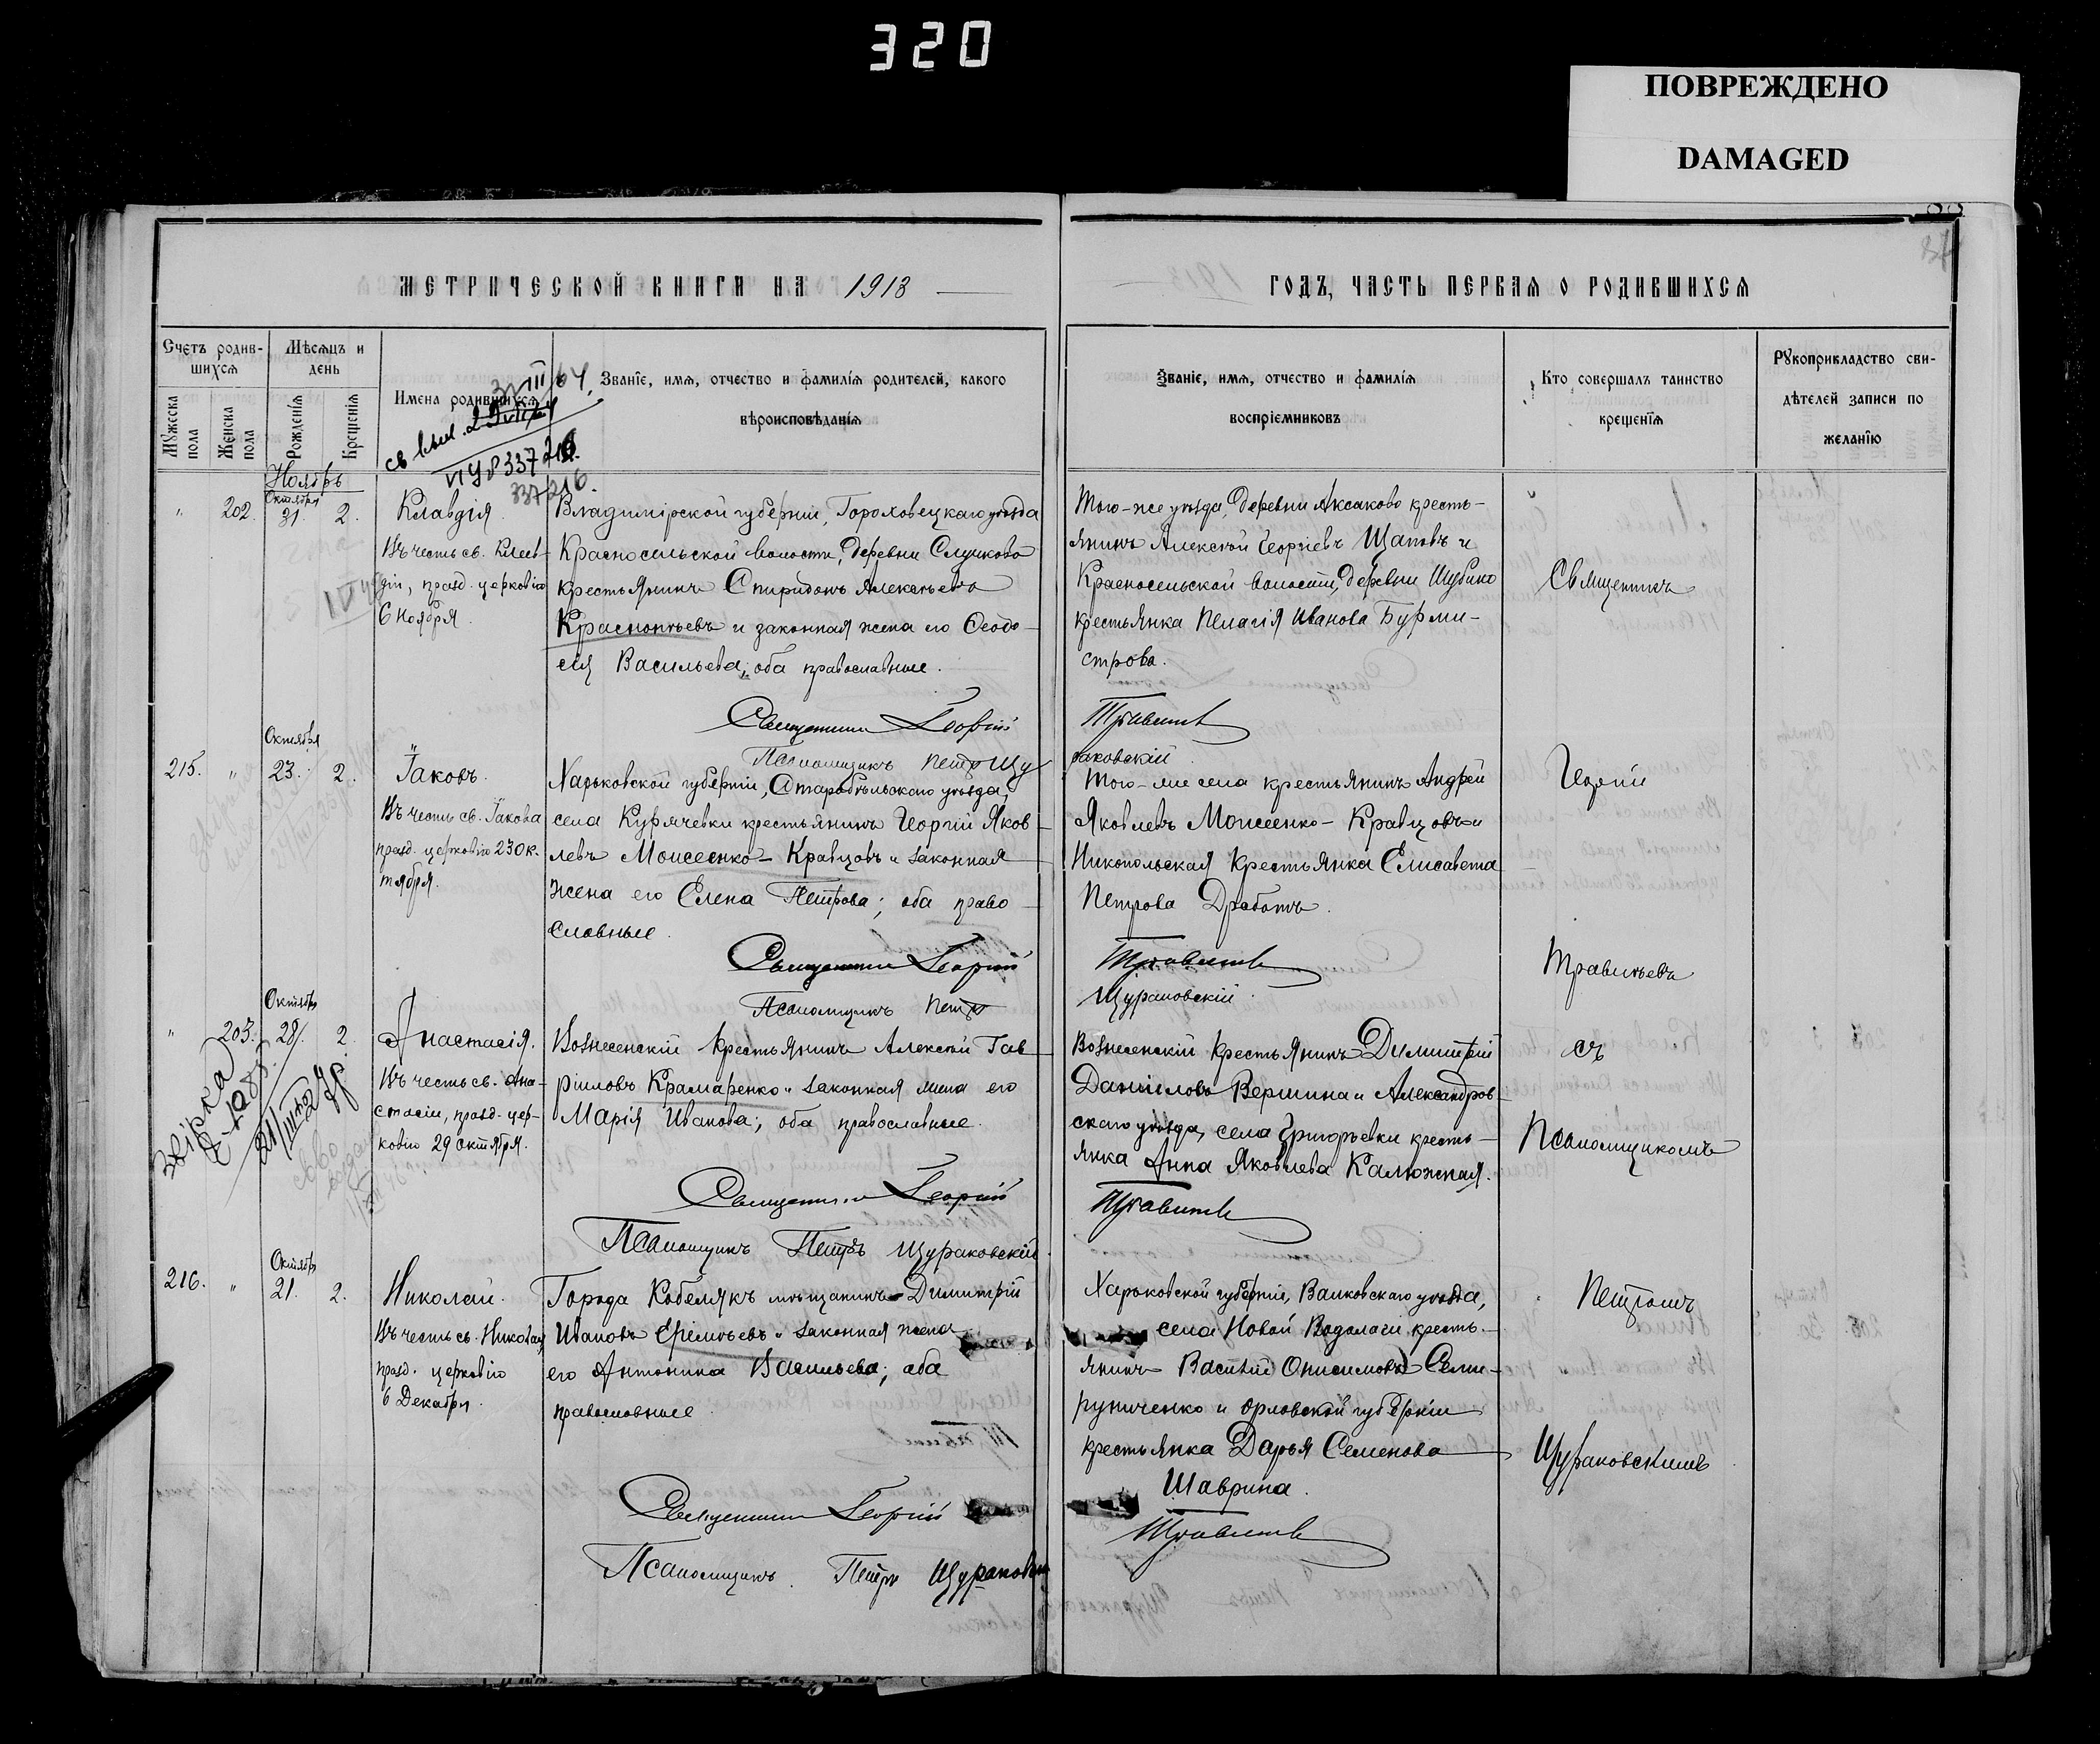 320
ПОВРЕЖДЕНО
DAMAGED
МЕТРИЧЕСКОЙ КНИГИ НА 1913
ГОДЪ, ЧАСТЬ ПЕРВАЯ О РОДИВШИХСЯ
Счетъ родив-
шихся
Мѣсяцъ и
день
Мужеска пола
Женска пола
Рожденія
Крещенія
Имена родившихся
Званіе, имя, отчество и фамилія родителей, какого
вѣроисповѣданія
Званіе, имя, отчество и фамилія
воспріемниковъ
Кто совершалъ таинство
крещенія
Рукоприкладство сви-
дѣтелей записи по
желанію
337/216.
Ноябрь
Октября
" 202. 31. 2.
Клавдія
Въ честь св. Клав-
діи, празд. церковію
6 Ноября.
Владимірской губерніи, Гороховецкаго уѣзда
Красносельской волости, деревни Слуиково
крестьянинъ Спиридонъ Алексѣевъ
Краснопѣевъ и законная жена его Ѳеодо-
сія Васильева; оба православные.
Священникъ Георгій
Псаломщикъ Петръ Щу
Того-же уѣзда, деревни Аксаково кресть-
янинъ Алексѣй Георгіевъ Щаповъ и
Красносельской волости, деревни Шубино
крестьянка Пелагія Иванова Бурми-
строва.
Травинъев
раковскій
Священникъ
Октября
215. " 23. 2.
Іаковъ.
Въ честь св. Іакова
празд. церковію 23 Ок-
тября.
Харьковской губерніи, Старобѣльскаго уѣзда,
села Курячевки крестьянинъ Георгій Яков-
левъ Моисеенко-Кравцовъ и законная
жена его Елена Петрова; оба право-
славные.
Священникъ Георгій
Псаломщикъ Петръ
Того-же села крестьянинъ Андрей
Яковлевъ Моисеенко-Кравцовъ и
Никопольская крестьянка Елисавета
Петрова Дработъ.
Щураковскій.
Георгій
Травинѣевъ
Октября
" 203. 28. 2.
звірка
Анастасія.
Въ честь св. Ана-
стасіи, празд. цер-
ковію 29 Октября.
Вознесенскій крестьянинъ Алексѣй Гав-
ріиловъ Крамаренко и законная жена его
Марія Иванова; оба православные.
Священникъ Георгій
Псаломщикъ Петръ Щураковскій.
Вознесенскій крестьянинъ Димитрій
Даніиловъ Вершина и Александров-
скаго уѣзда, села Григорьевки кресть-
янка Анна Яковлева Калюжная.
съ
Псаломщикомъ
Октября
216. " 21. 2.
Николай.
Въ честь св. Николая,
празд. церковію
6 Декабря.
Города Кобелякъ мѣщанинъ Димитрій
Ивановъ Ерёмѣевъ и законная жена
его Антонина Васильева; оба
православные
Священникъ Георгій
Псаломщикъ. Петръ Щураковскій
Харьковской губерніи, Валковскаго уѣзда,
села Новой Водолаги кресть-
янинъ Василій Онисимовъ Семи-
руниченко и Орловской губерніи
крестьянка Дарья Семенова
Шаврина.
Петромъ
Щураковскимъ